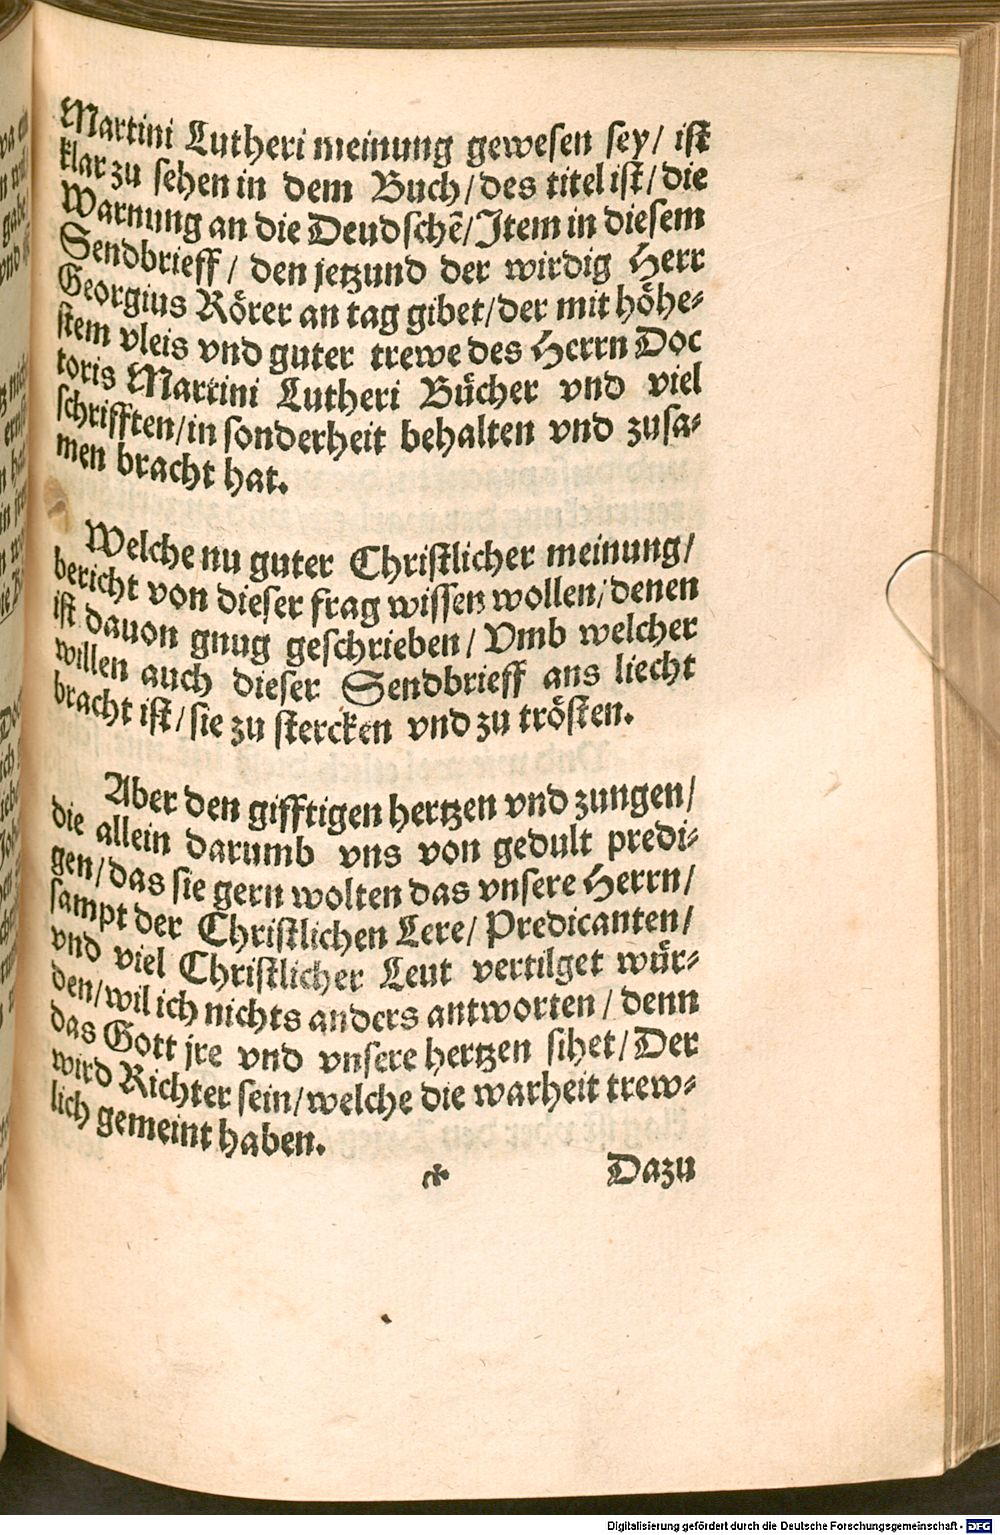 Martini Lutheri meinung gewesen sey/ ist
klar zu sehen in dem Buch/des titel ist/die
Warnung an die Deudschẽ/Item in diesem
Sendbrieff/ den jetzund der wirdig Herr
Georgius Rörer an tag gibet/der mit höhe-
stem vleis vnd guter trewe des Herrn Doc
toris Martini Lutheri Bücher vnd viel
schrifften/in sonderheit behalten vnd zusa-
men bracht hat.
Welche nu guter Christlicher meinung/
bericht von dieser frag wissen wollen/denen
ist dauon gnug geschrieben/ Vmb welcher
willen auch dieser Sendbrieff ans liecht
bracht ist/sie zu stercken vnd zu trösten.
Aber den gifftigen hertzen vnd zungen/
die allein darumb vns von gedult predi-
gen/das sie gern wolten das vnsere Herrn/
sampt der Christlichen Lere/ Predicanten/
vnd viel Christlicher Leut vertilget wür-
den/wil ich nichts anders antworten/ denn
das Gott jre vnd vnsere hertzen sihet/Der
wird Richter sein/welche die warheit trew-
lich gemeint haben.
Dazu
Digitalisierung gefördert durch die Deutsche Forschungsgemeinschaft - DFG